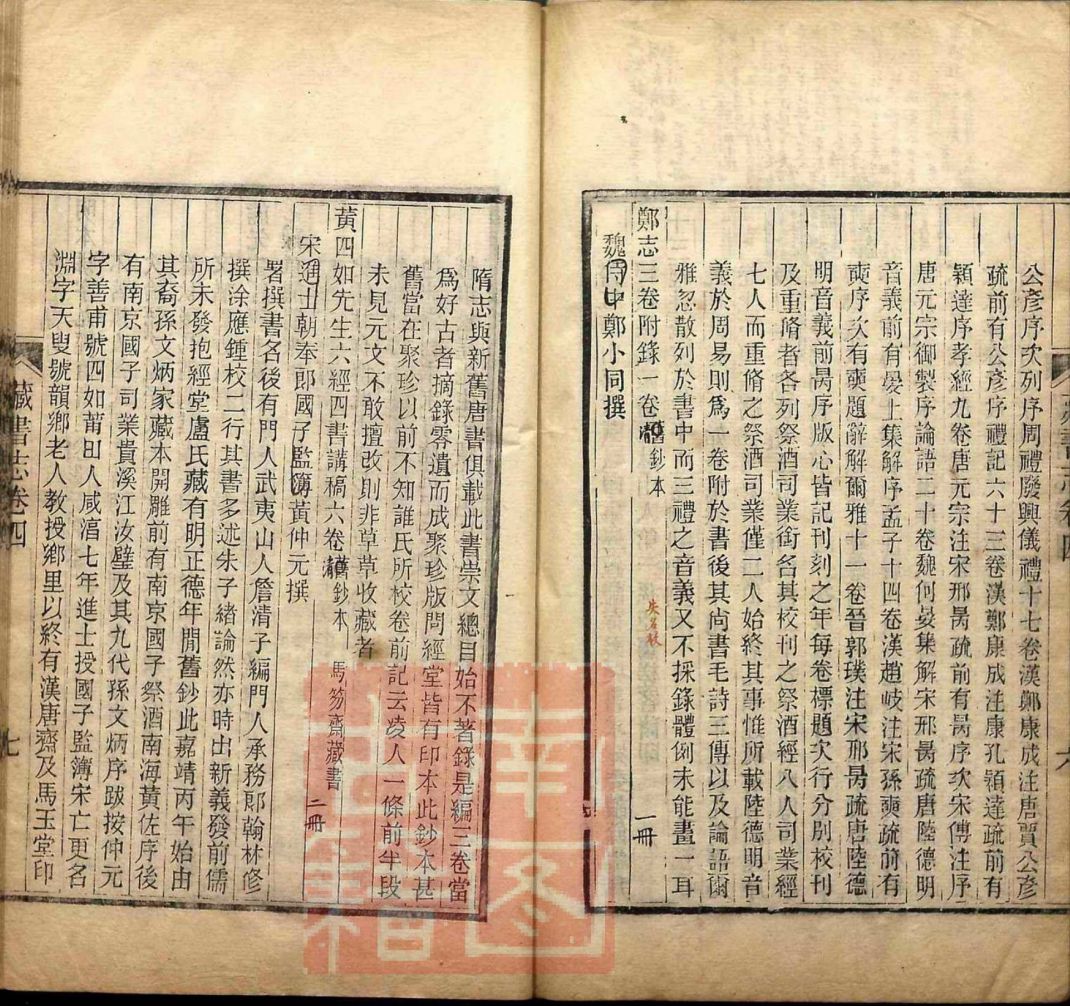 公彥序次列序周禮廢興儀禮十七卷漢鄭康成注唐賈公彥
疏前有公彥序禮記六十三卷漢鄭康成注唐孔穎達疏前有
穎達序孝經九卷唐元宗注宋邢昺疏前有昺序次宋傅注序
唐元宗御製序論語二十卷魏何晏集解宋邢昺疏唐陸德明
音義前有晏上集解序孟子十四卷漢趙岐注宋孫奭疏前有
奭序次有奭題辭解爾雅十一卷晉郭璞注宋邢昺疏唐陸德
明音義前昺序版心皆記刊刻之年每卷標題次行分別校刊
及重脩者各列祭酒司業銜名其校刊之祭酒經八人司業經
七人而重脩之祭酒司業僅二人始終其事惟所載陸德明音
義於周易則為一卷附於書後其尚書毛詩三傳以及論語爾
雅忽散列於書中而三禮之音義又不採錄體例未能畫一耳
鄭志三卷附錄一卷 舊鈔本 一冊
魏侍中鄭小同撰
隋志與新舊唐書俱載此書崇文總目始不著錄是編三卷當
為好古者摘錄零遺而成聚珍版問經堂皆有印本此鈔本甚
舊當在聚珍以前不知誰氏所校卷前記云凌人一條前半段
未見元文不敢擅改則非草草收藏者
黃四如先生六經四書講稿六卷 舊鈔本 馬笏齋藏書 二冊
宋通士朝奉郎國子監簿黃仲元撰
署撰書名後有門人武夷山人詹清子編門人承務郎翰林修
撰涂應鍾校二行其書多述朱子緒論然亦時出新義發前儒
所未發抱經堂盧氏藏有明正德年閒舊鈔此嘉靖丙午始由
其裔孫文炳家藏本開雕前有南京國子祭酒南海黃佐序後
有南京國子司業貴溪江汝璧及其九代孫文炳序跋按仲元
字善甫號四如莆田人咸淳七年進士授國子監簿宋亡更名
淵字天叟號韻鄉老人教授鄉里以終有漢唐齋及馬玉堂印
藏書志卷四
七